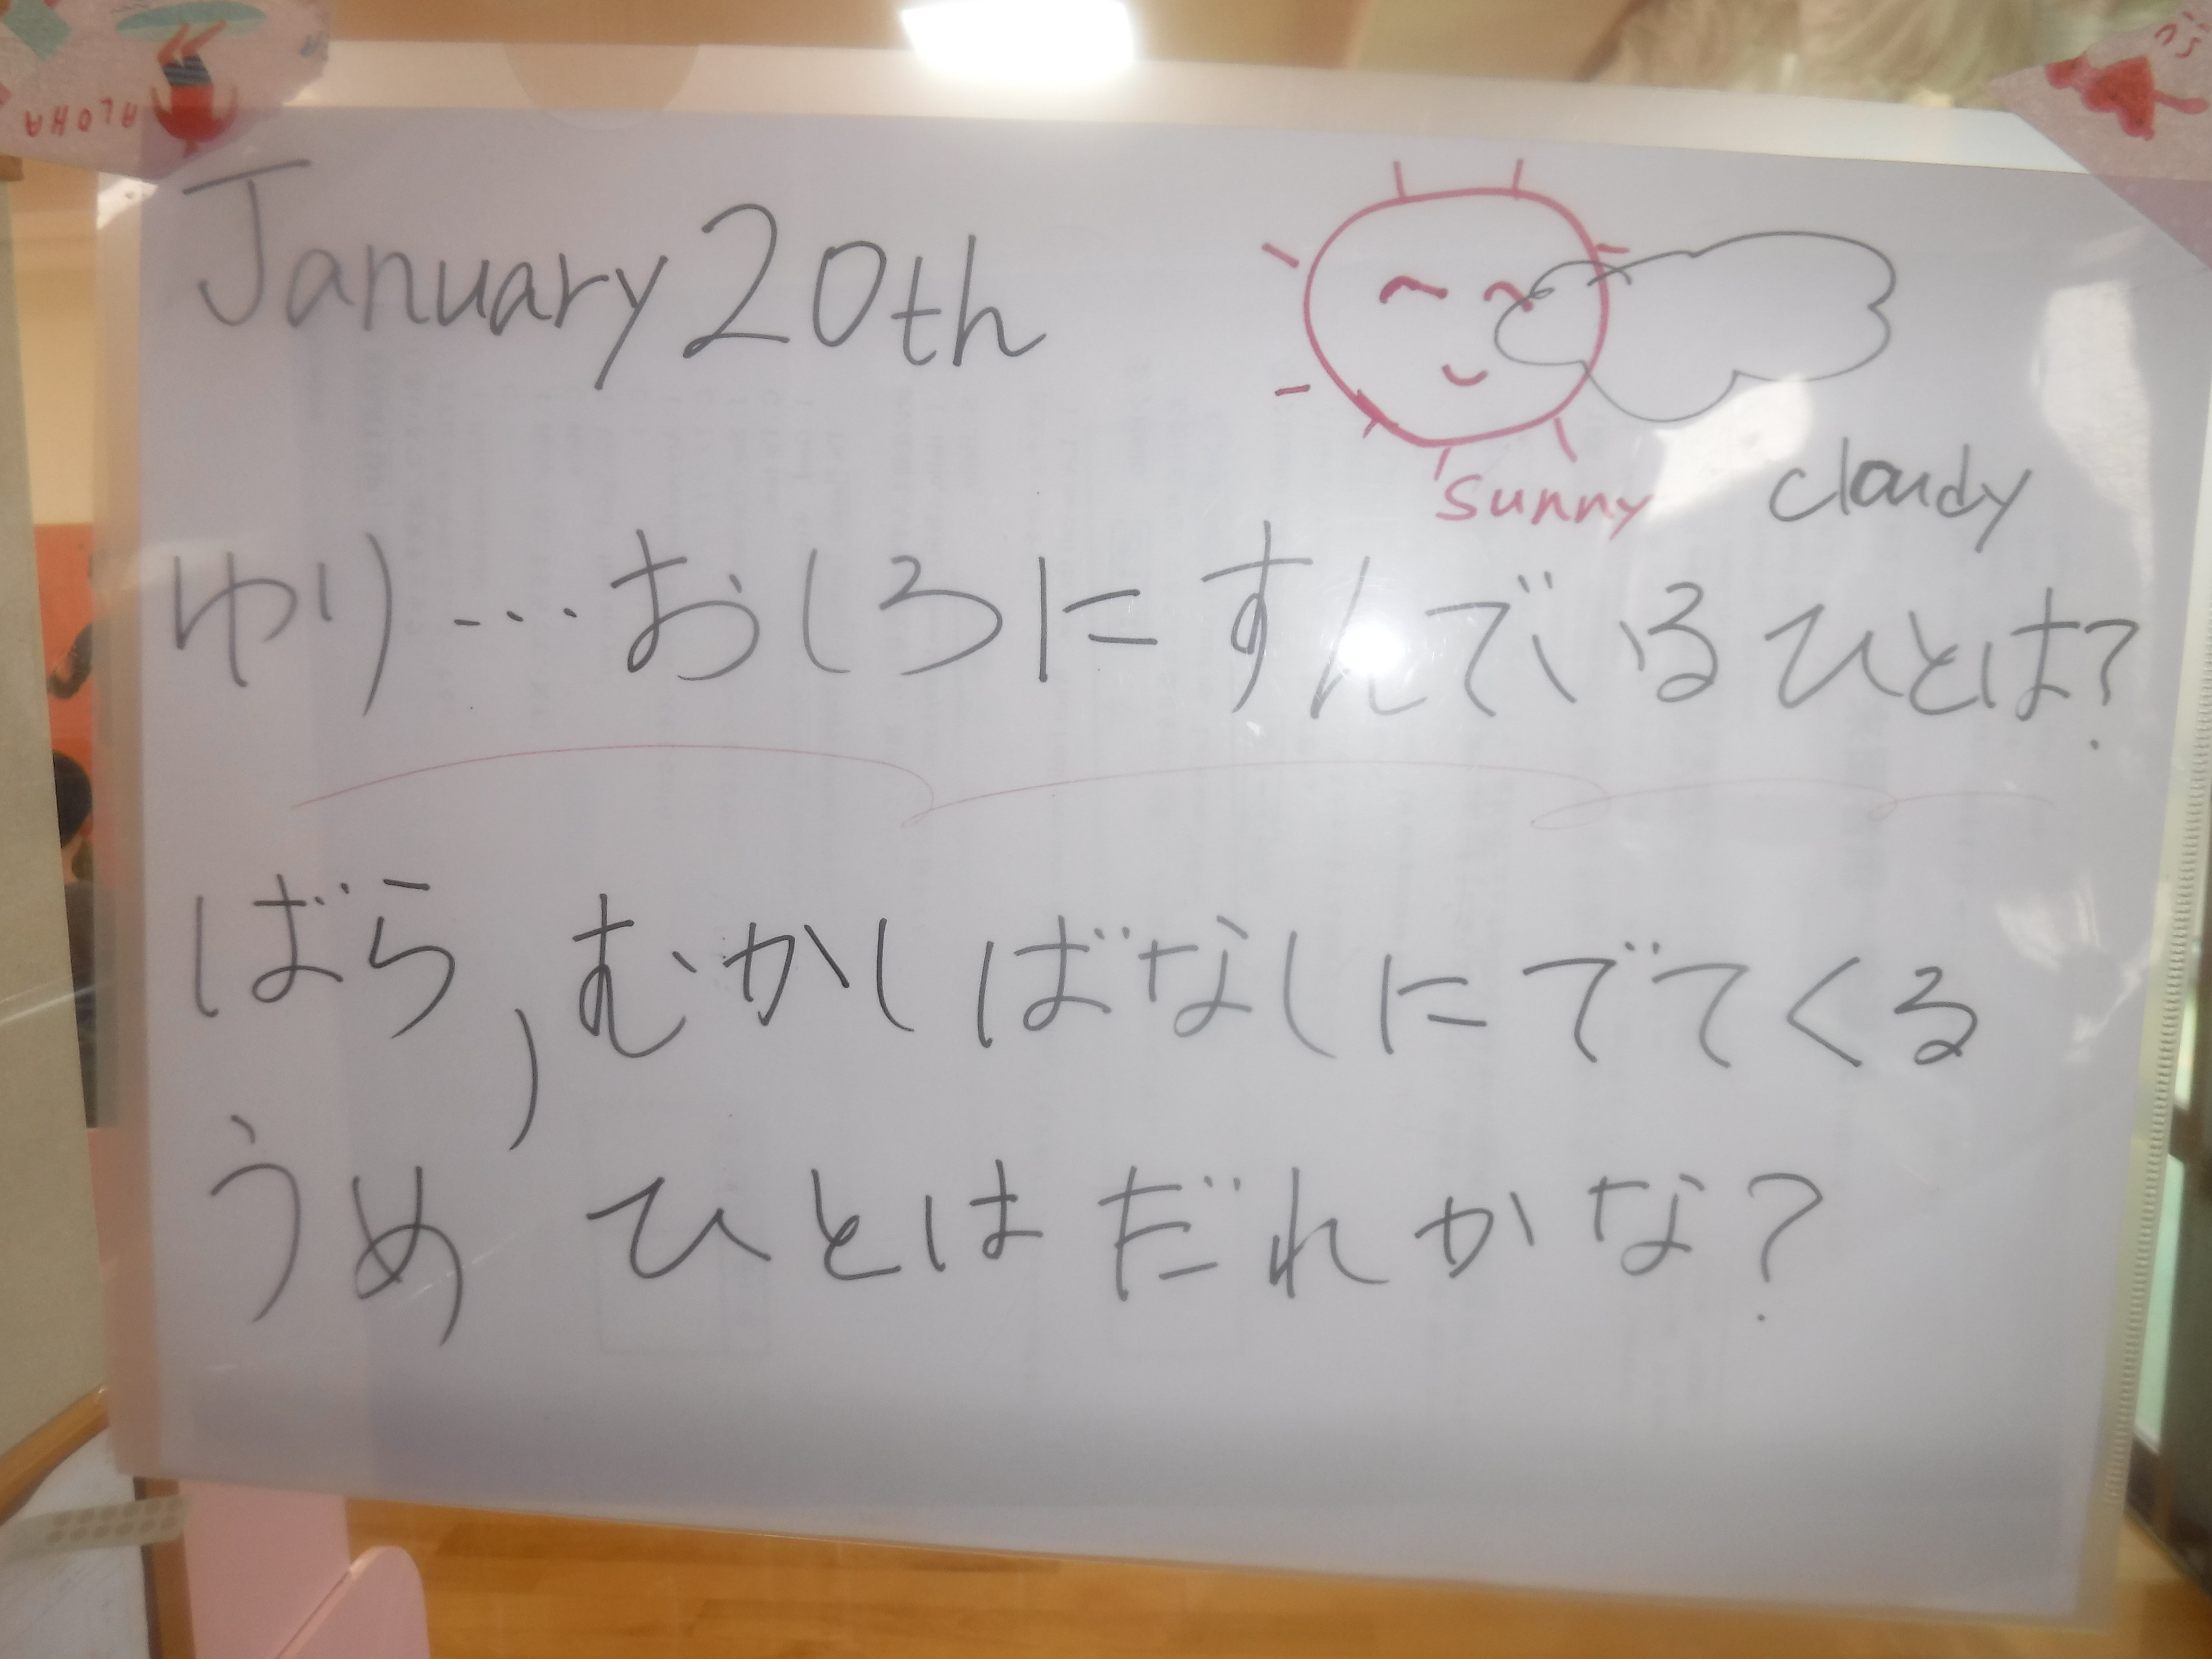 ALOHA
January 20th
sunny cloudy
ゆり…おしろにすんでいるひとは?
ばら,むかしばなしにでてくる
うめ ひとはだれかな?